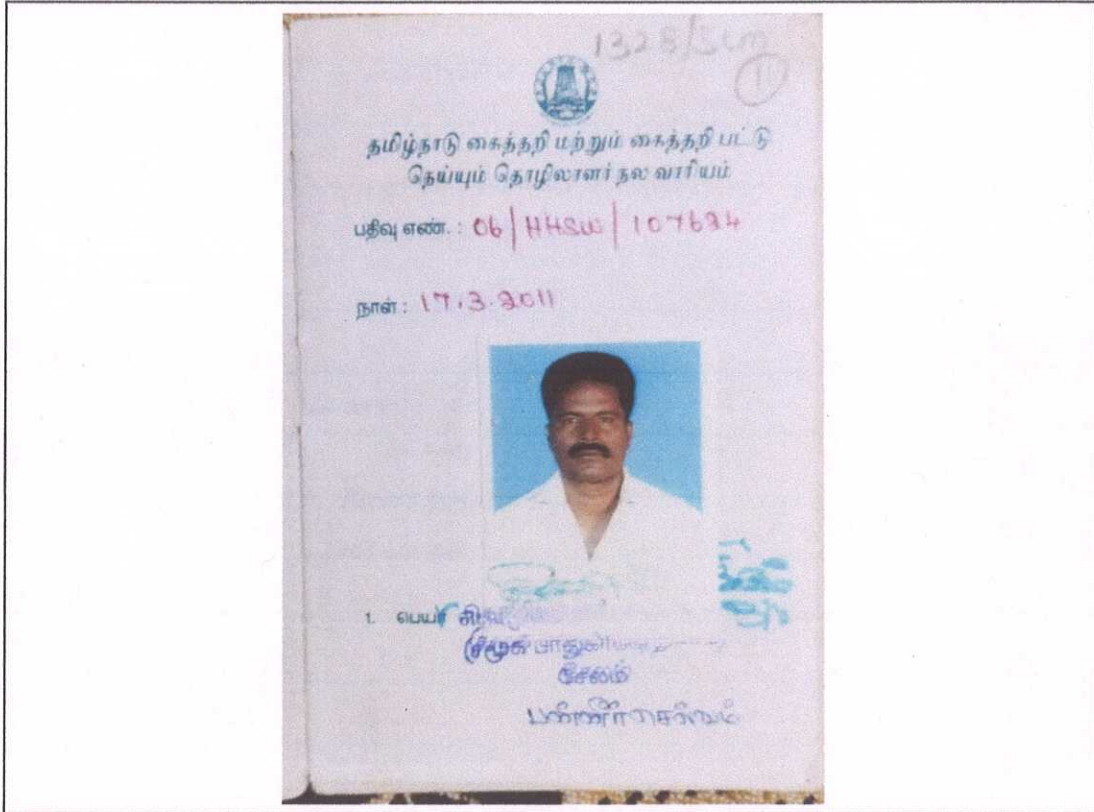 1328/Slm
11
தமிழ்நாடு கைத்தறி மற்றும் கைத்தறி பட்டு
நெய்யும் தொழிலாளர் நல வாரியம்
பதிவு எண். : 06/HHSW/107624
நாள் : 17.3.2011
1. பெயர்
சேலம்
பன்னீர்செல்வம்